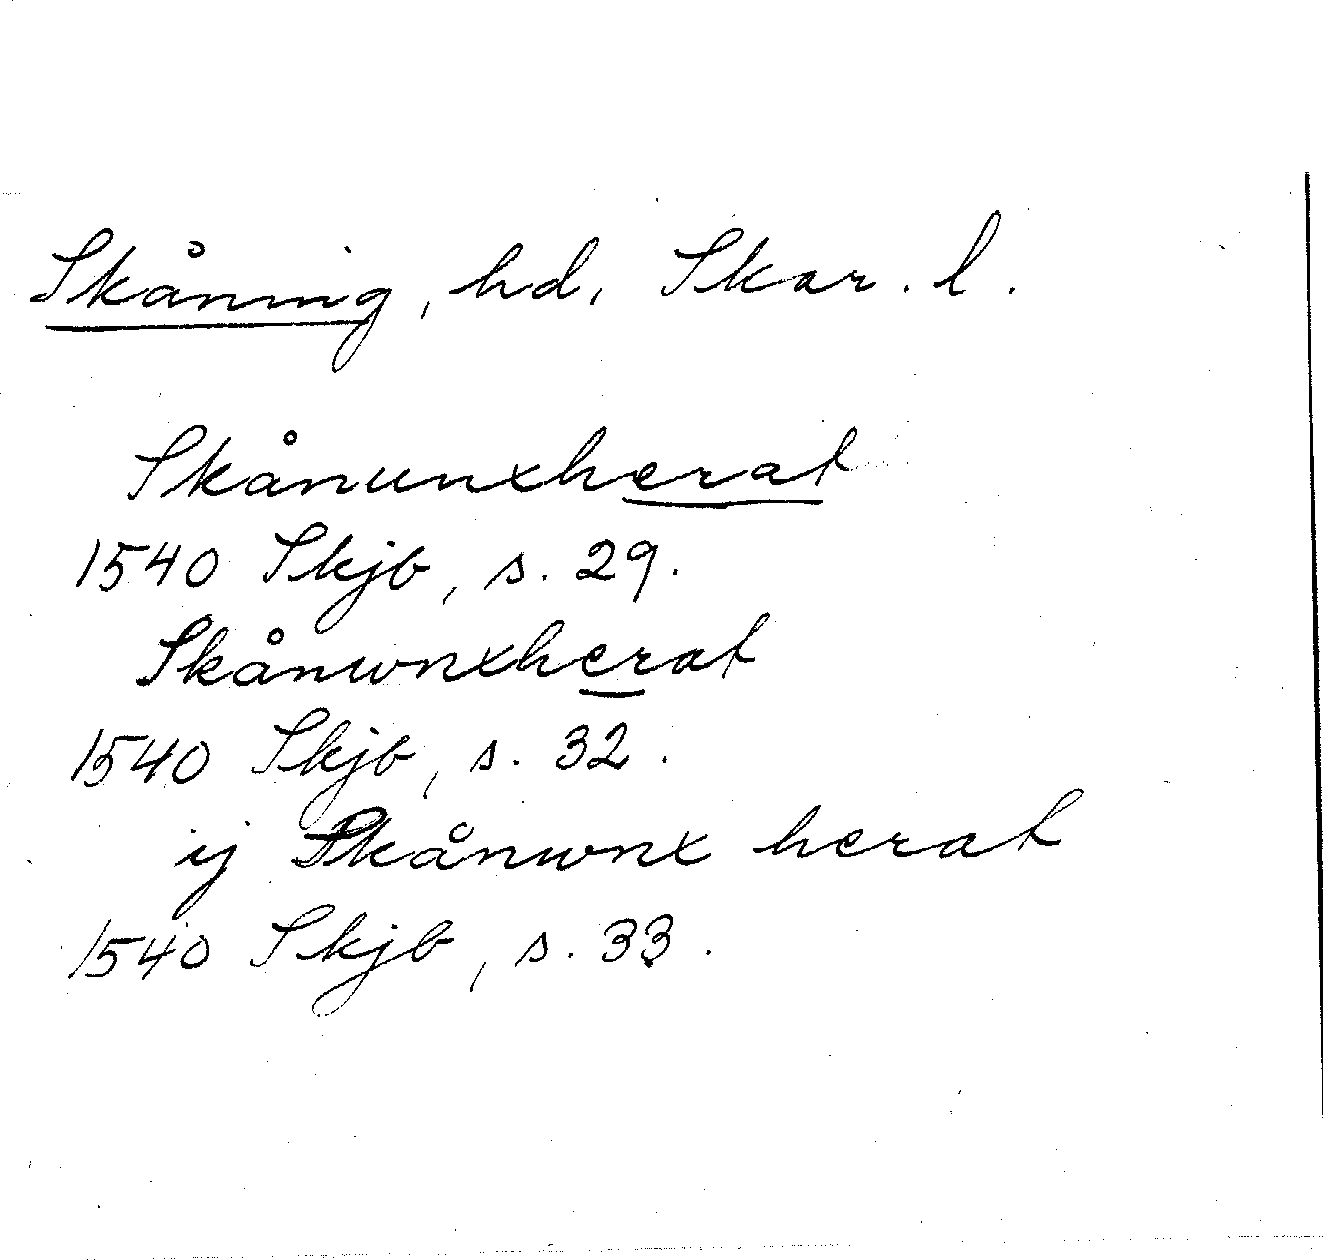 Skåning, hd, Skar. l.
Skånunxherat
1540 Skjb, s. 29.
Skånwnxherat
1540 Skjb, s. 32.
ij Skånwnx herat
1540 Skjb, s. 33.